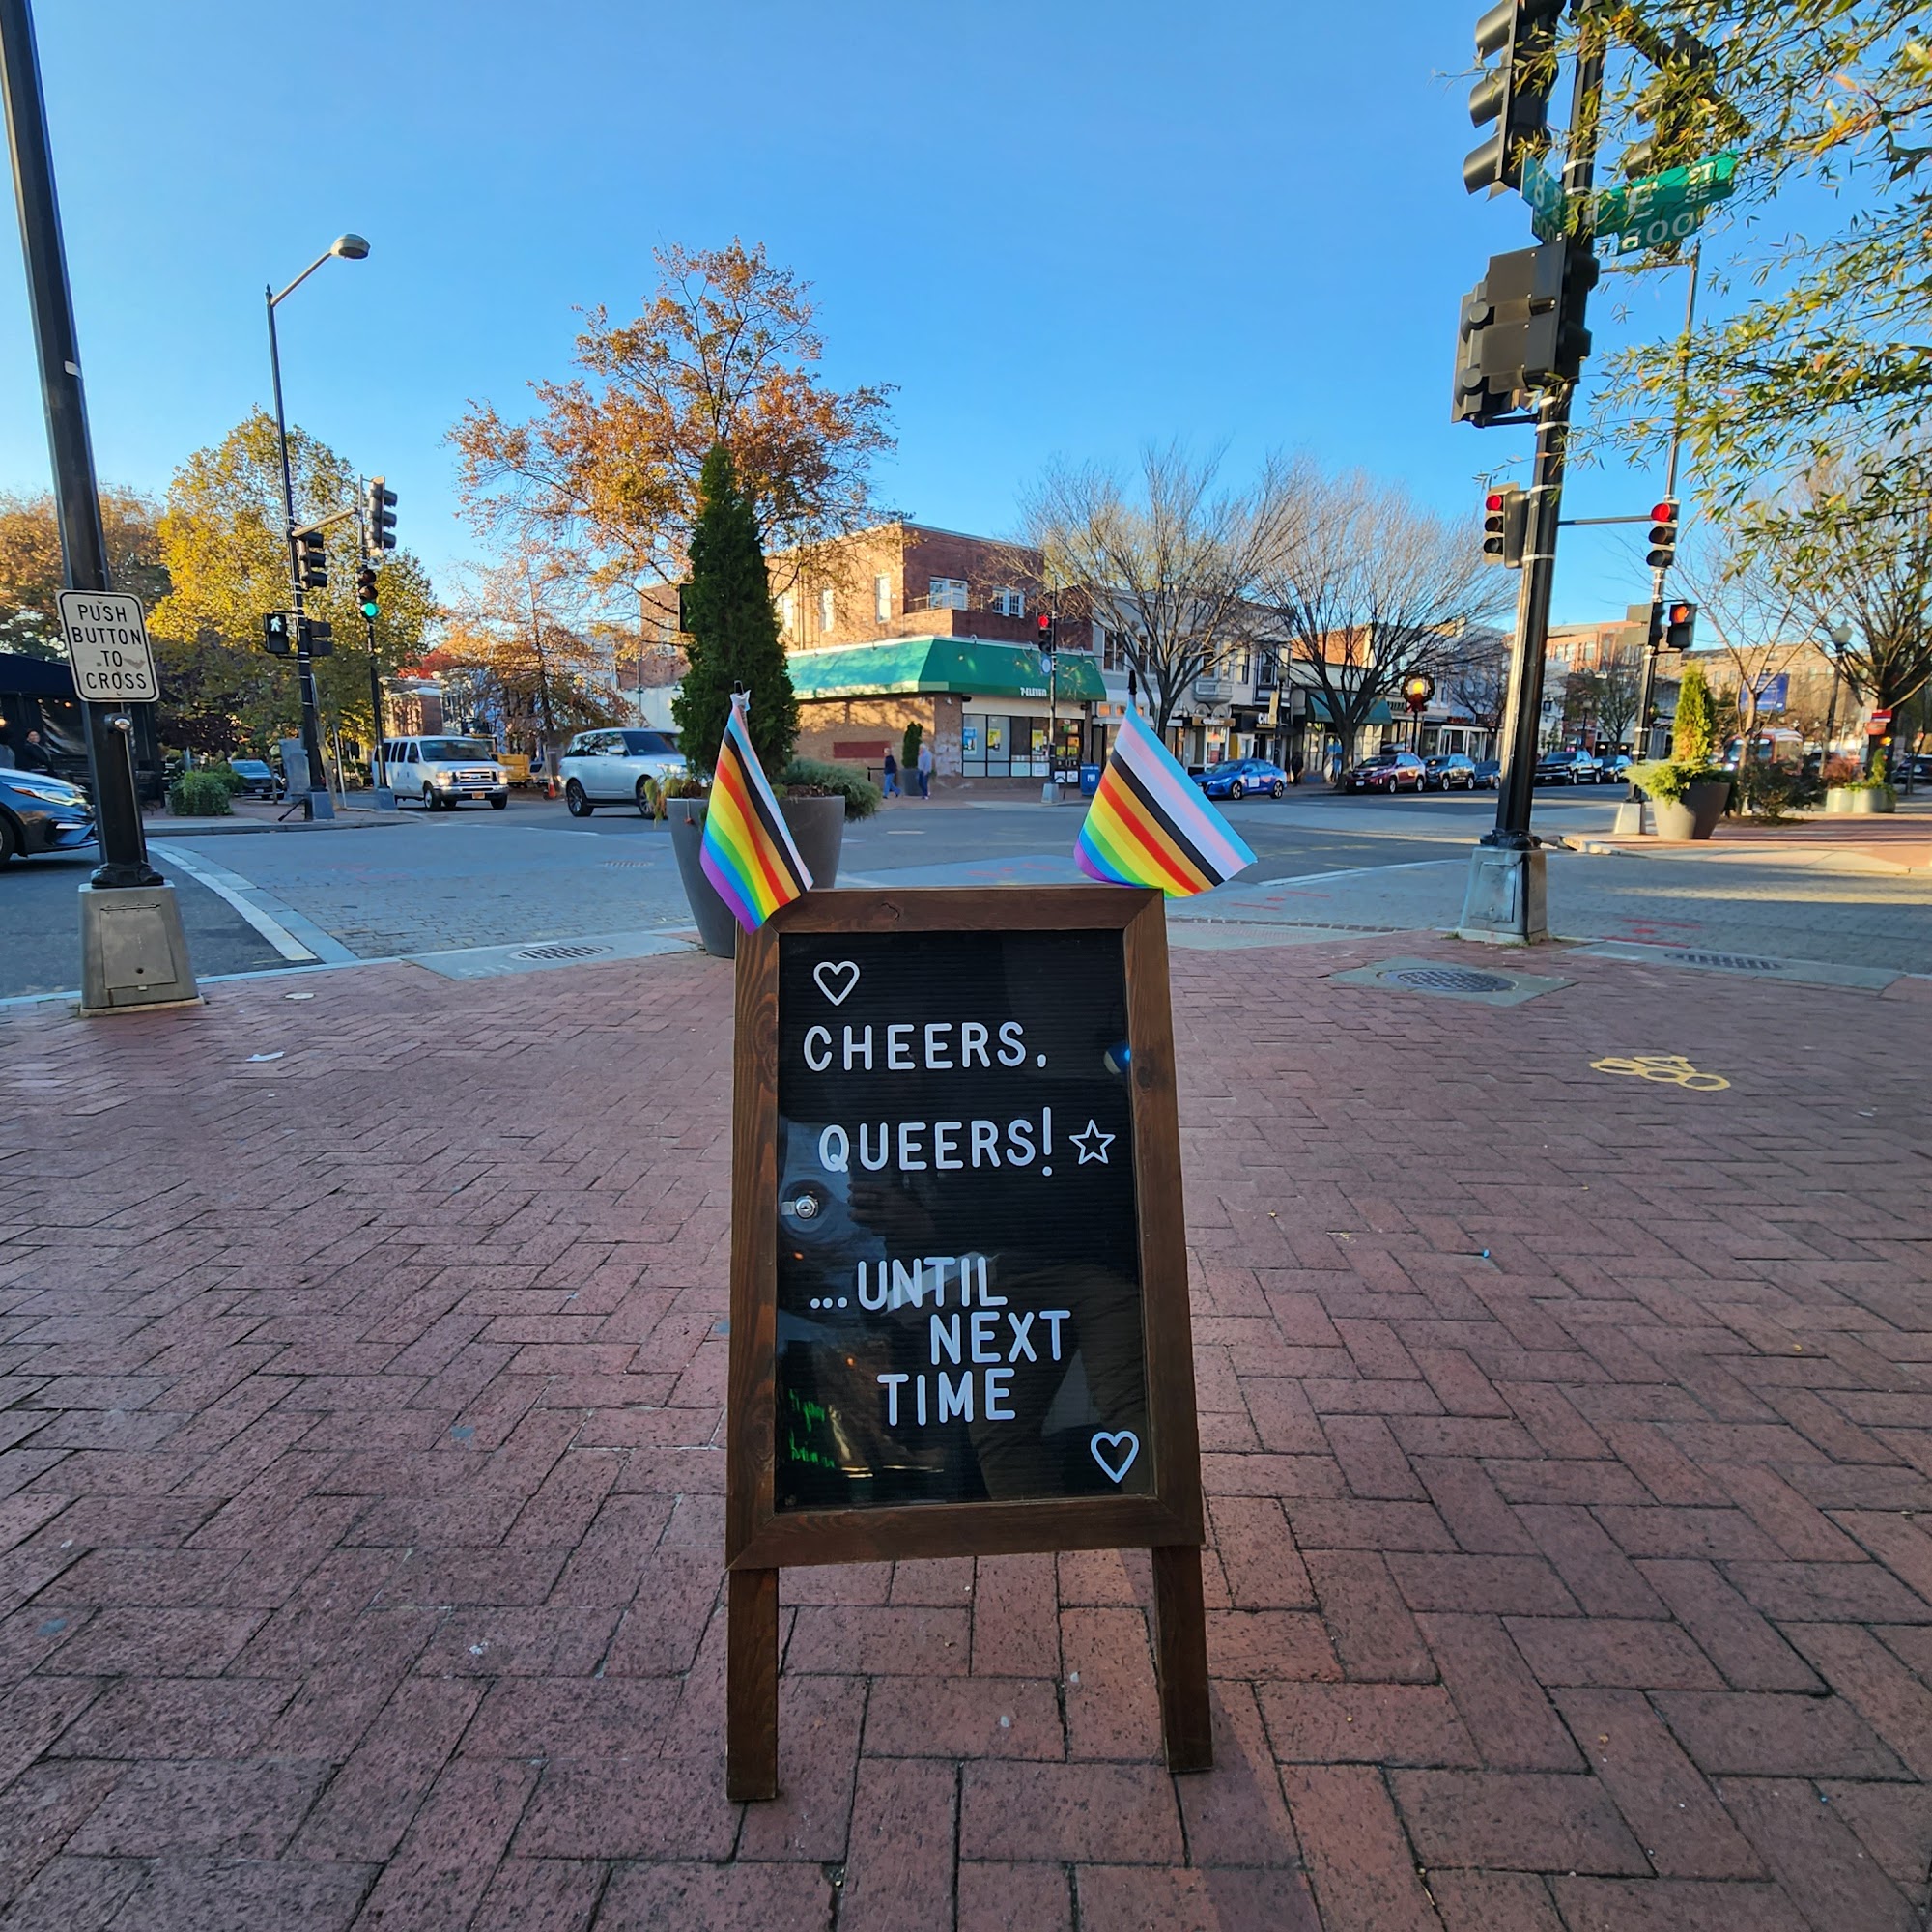 PUSH
BUTTON
TO
CROSS
E ST
SE
600
7-ELEVEN
CHEERS,
QUEERS!
...UNTIL
NEXT
TIME